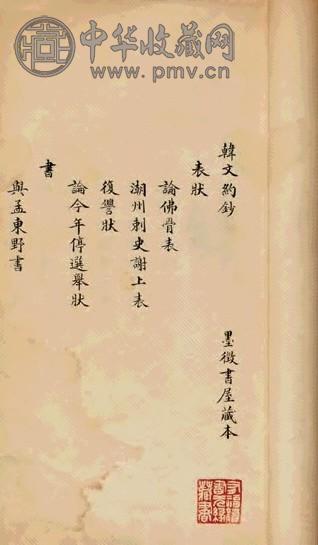 中华收藏网
www.pmv.cn
韓文約鈔
墨微書屋藏本
表狀
論佛骨表
潮州刺史謝上表
復讐狀
論今年停選舉狀
書
與孟東野書